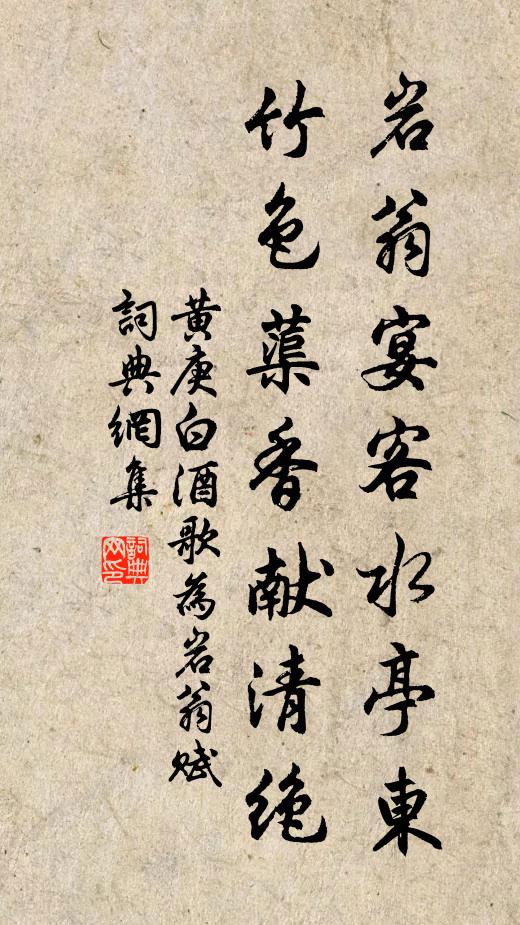 岩翁宴客水亭東
竹色蕖香献清绝
黄庚白酒歌為岩翁賦
詞典網集
詞典网印